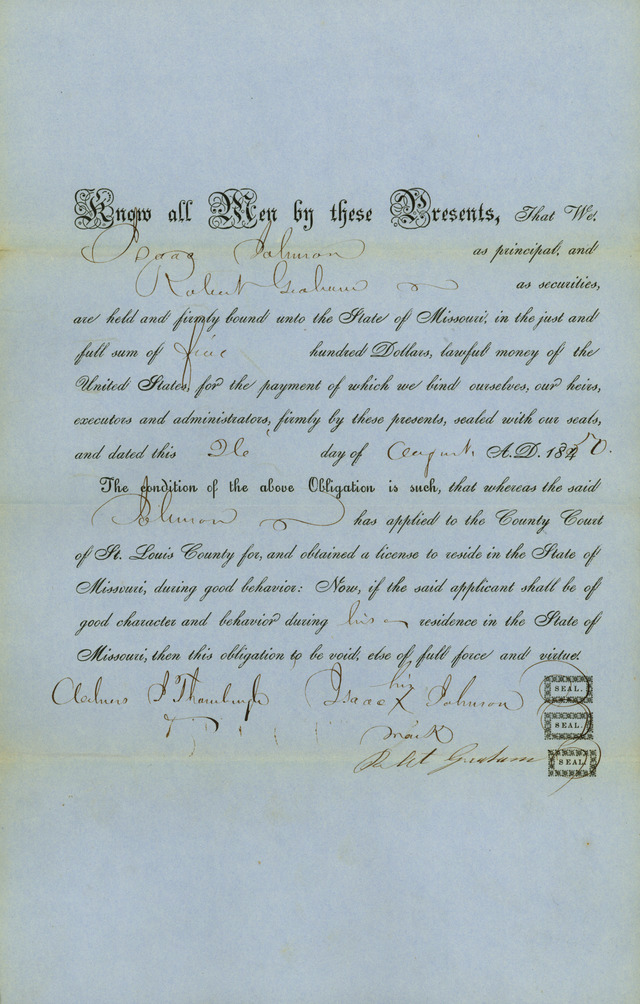 Know all Men by these Presents, That We,
Isaac Johnson as principal, and
Robert Graham as securities,
are held and firmly bound unto the State of Missouri, in the just and
full sum of five hundred Dollars, lawful money of the
United States, for the payment of which we bind ourselves, our heirs,
executors and administrators, firmly by these presents, sealed with our seals,
and dated this day of August A.D. 1850.
The condition of the above Obligation is such, that whereas the said
Johnson has applied to the County Court
of St. Louis County for, and obtained a license to reside in the State of
Missouri, during good behavior: Now, if the said applicant shall be of
good character and behavior during his residence in the State of
Missouri, then this obligation to be void, else of full force and virtue.
his
Isaac X Johnson SEAL.
mark SEAL.
Robt Graham SEAL.